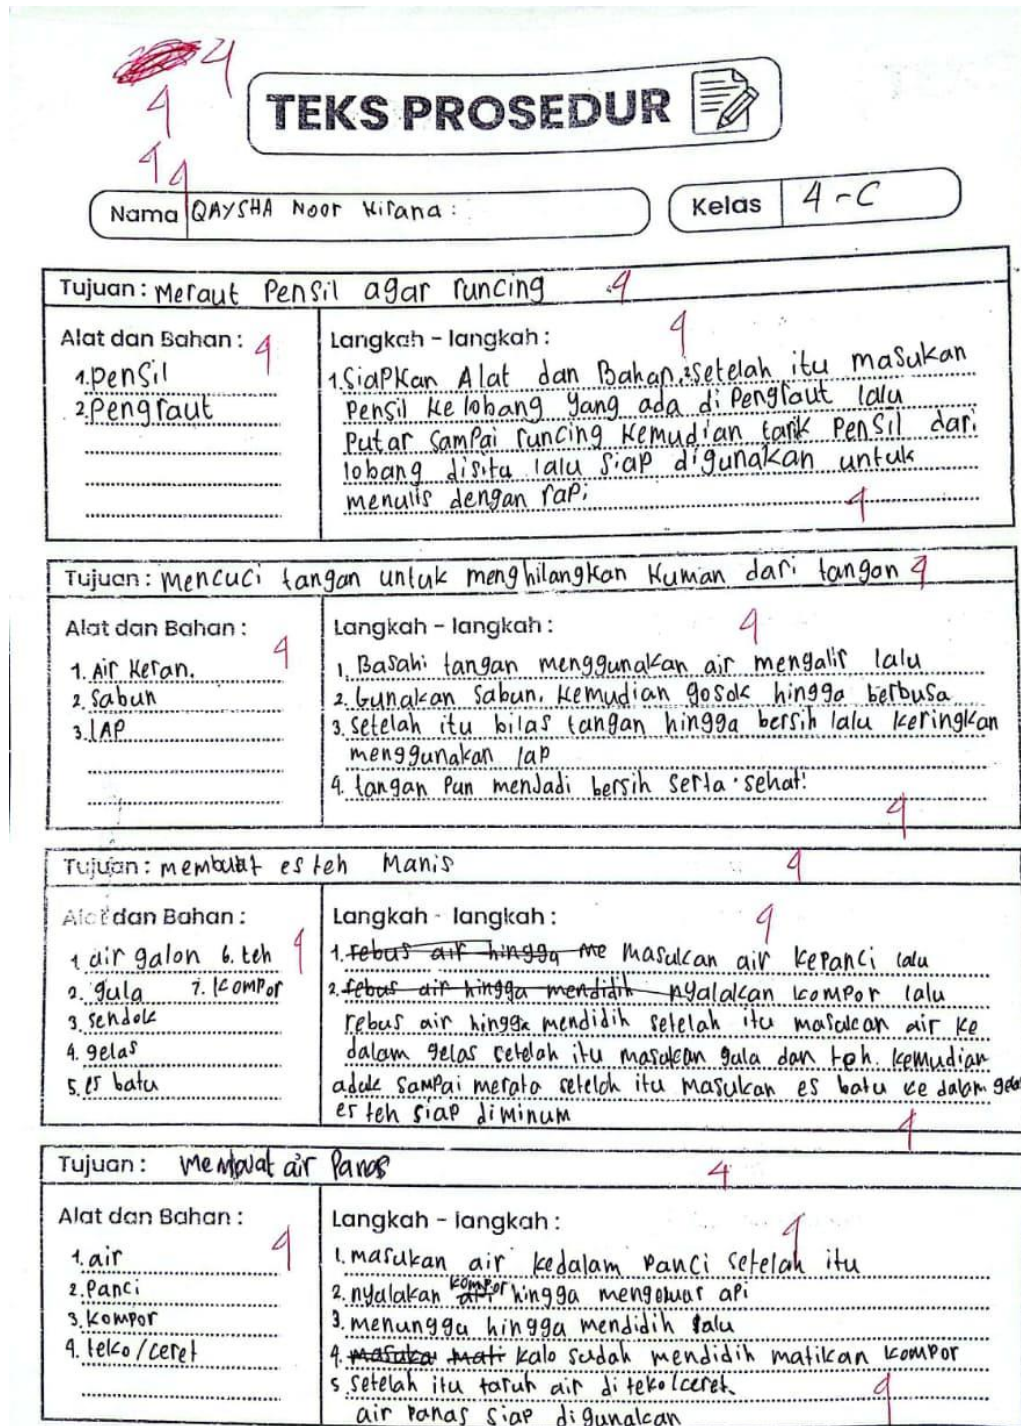 4
4
4 4
TEKS PROSEDUR
Nama QAYSHA Noor Kirana :
Kelas 4-C
Tujuan : Meraut Pensil agar runcing 4
Alat dan Bahan : 4
1. Pensil
2. Pengraut
Langkah - langkah : 4
1. Siapkan Alat dan Bahan, setelah itu masukan
Pensil ke lobang yang ada di Pengraut lalu
Putar sampai runcing kemudian tarik Pensil dari
lobang disitu lalu siap digunakan untuk
menulis dengan rapi 4
Tujuan : mencuci tangan untuk menghilangkan kuman dari tangan 4
Alat dan Bahan : 4
1. Air keran.
2. Sabun
3. LAP
Langkah - langkah : 4
1. Basahi tangan menggunakan air mengalir lalu
2. Gunakan sabun. kemudian gosok hingga berbusa
3. setelah itu bilas tangan hingga bersih lalu keringkan
menggunakan lap
4. tangan Pun menjadi bersih serta sehat!
4
Tujuan : membuat es teh Manis 4
Alat dan Bahan : 4
1 air galon 6. teh
2. gula 7. kompor
3. sendok
4. gelas
5. es batu
Langkah - langkah : 4
1. rebus air hingga me masukan air kepanci lalu
2. rebus air hingga mendidih nyalakan kompor lalu
rebus air hingga mendidih setelah itu masukan air ke
dalam gelas setelah itu masukan gula dan teh. kemudian
aduk sampai merata setelah itu masukan es batu ke dalam gelas
es teh siap diminum 4
Tujuan : Membuat air Panas 4
Alat dan Bahan : 4
1. air
2. Panci
3. kompor
4. teko/ceret
Langkah - langkah : 4
1. masukan air kedalam Panci setelah itu
2. nyalakan kompor hingga mengeluar api
3. menunggu hingga mendidih lalu
4. masuka mati kalo sudah mendidih matikan kompor
5. setelah itu taruh air di teko/ceret. 4
air Panas siap digunakan